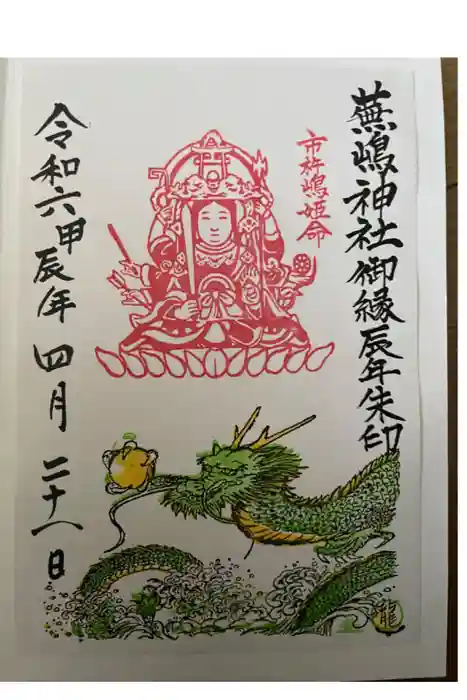 蕪嶋神社御縁辰年朱印
市杵嶋姫命
令和六甲辰年四月二十八日
龍